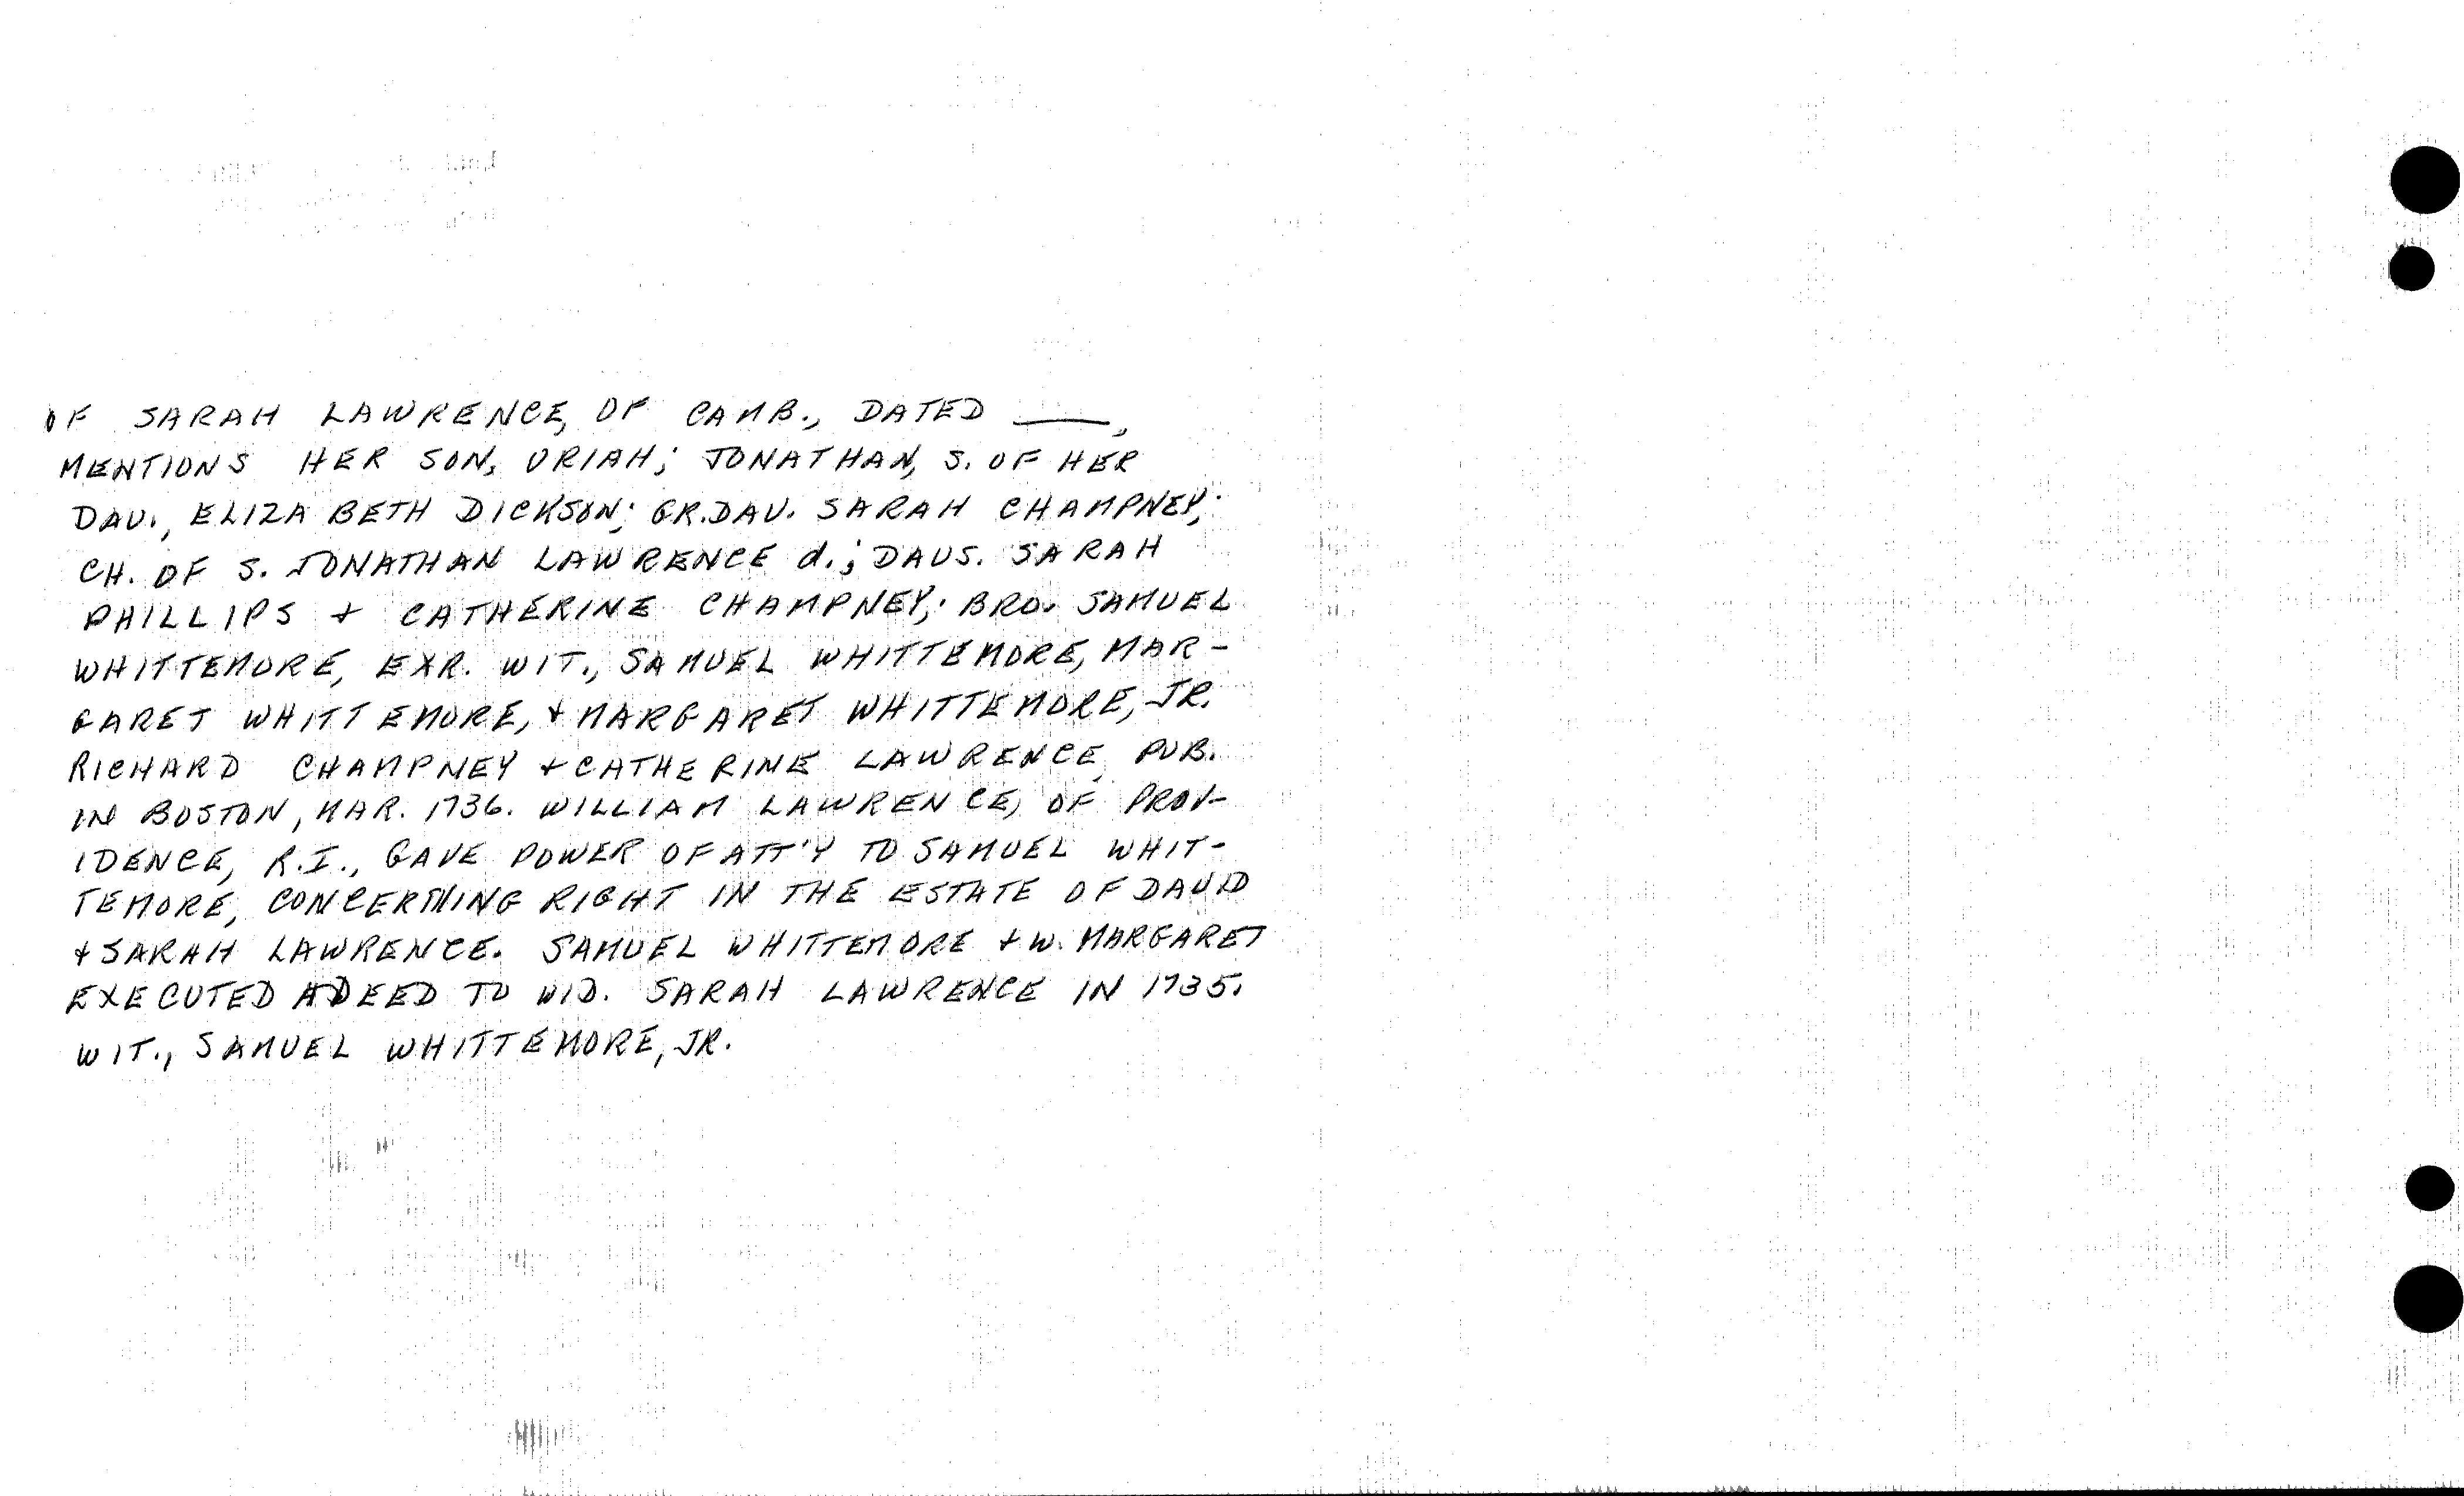 OF SARAH LAWRENCE, OF CAMB., DATED ———,
MENTIONS HER SON, URIAH; JONATHAN, S. OF HER
DAU., ELIZABETH DICKSON; GR.DAU. SARAH CHAMPNEY;
CH. OF S. JONATHAN LAWRENCE d.; DAUS. SARAH
PHILLIPS + CATHERINE CHAMPNEY; BRO. SAMUEL
WHITTEMORE, EXR. WIT., SAMUEL WHITTEMORE, MAR-
GARET WHITTEMORE, + MARGARET WHITTEMORE, JR.
RICHARD CHAMPNEY + CATHERINE LAWRENCE, PUB.
IN BOSTON, MAR. 1736. WILLIAM LAWRENCE, OF PROV-
IDENCE, R.I., GAVE POWER OF ATT'Y TO SAMUEL WHIT-
TEMORE, CONCERNING RIGHT IN THE ESTATE OF DAVID
+ SARAH LAWRENCE. SAMUEL WHITTEMORE + W. MARGARET
EXECUTED A DEED TO WID. SARAH LAWRENCE IN 1735.
WIT., SAMUEL WHITTEMORE, JR.